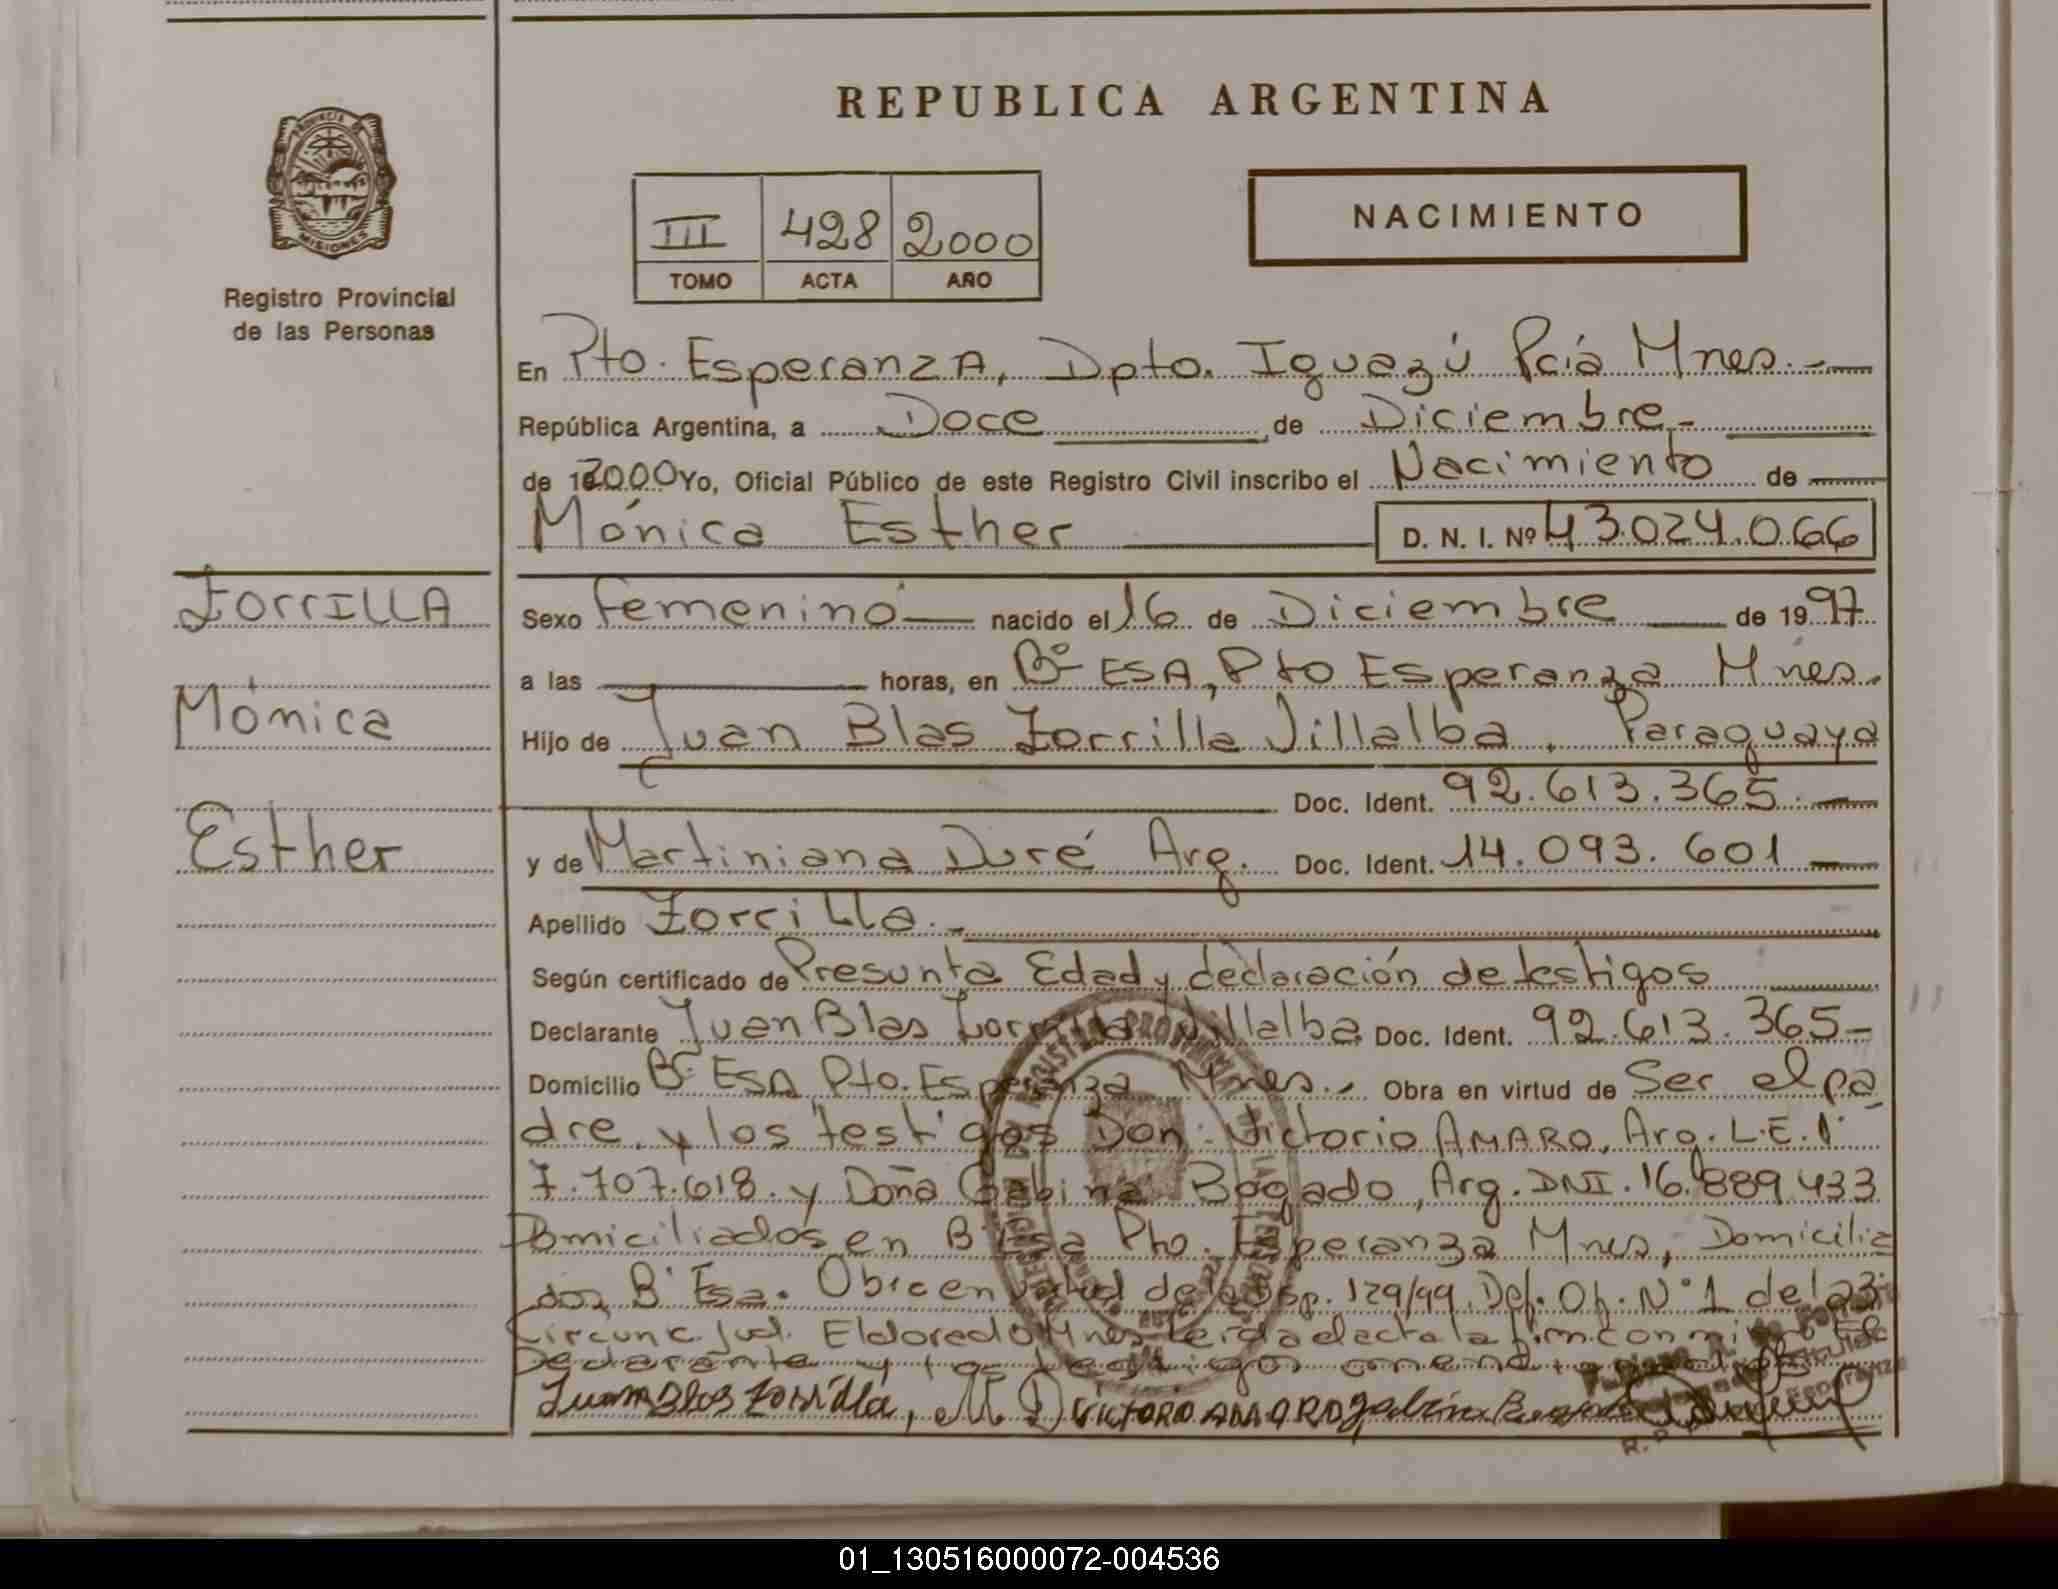 REPUBLICA ARGENTINA
PROVINCIA DE
MISIONES
Registro Provincial
de las Personas
III 428 2000
TOMO ACTA AÑO
NACIMIENTO
En Pto. Esperanza, Dpto. Iguazú Pcia Mnes.-
República Argentina, a Doce de Diciembre.-
de 2000 Yo, Oficial Público de este Registro Civil inscribo el Nacimiento de
Mónica Esther D. N. I. Nº 43.024.066
Zorrilla
Mónica
Esther
Sexo femenino nacido el 16 de Diciembre de 1997
a las horas, en Bº ESA, Pto Esperanza Mnes.
Hijo de Juan Blas Zorrilla Villalba, Paraguaya
Doc. Ident. 92.613.365.-
y de Martiniana Duré Arg. Doc. Ident. 14.093.601
Apellido Zorrilla.-
Según certificado de Presunta Edad y declaración de testigos
Declarante Juan Blas Zorrilla Villalba Doc. Ident. 92.613.365-
Domicilio Bº ESA Pto. Esperanza Mnes.- Obra en virtud de Ser el pa
dre y los testigos Don: Victorio AMARO, Arg. L.E.
7.707.618. y Doña Gabina Bogado, Arg. DNI. 16.889.433
Domiciliados en Bº Esa Pto. Esperanza Mnes, Domicilia
dos Bº Esa. Obra en virtud de la Disp. 129/99 Def. Of. Nº 1 de la 3º
Circunc. Jud. Eldorado Mnes Leida el acta la firman conmigo el
Declarante y los testigos
Juan Blas Zorrilla, M D VICTORIO AMARO Gabina Bogado
01_130516000072-004536